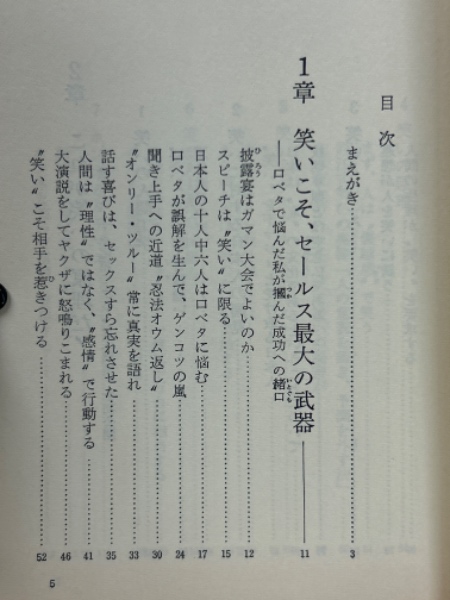 目次
まえがき……3
1章 笑いこそ、セールス最大の武器——11
——口ベタで悩んだ私が摑んだ成功への緒口
披露宴はガマン大会でよいのか……12
スピーチは〝笑い〟に限る……15
日本人の十人中六人は口ベタに悩む……17
口ベタが誤解を生んで、ゲンコツの嵐……24
聞き上手への近道〝忍法オウム返し〟……30
〝オンリー・ツルー〟常に真実を語れ……33
話す喜びは、セックスすら忘れさせた……35
人間は〝理性〟ではなく、〝感情〟で行動する……41
大演説をしてヤクザに怒鳴りこまれる……46
〝笑い〟こそ相手を惹きつける……52
5